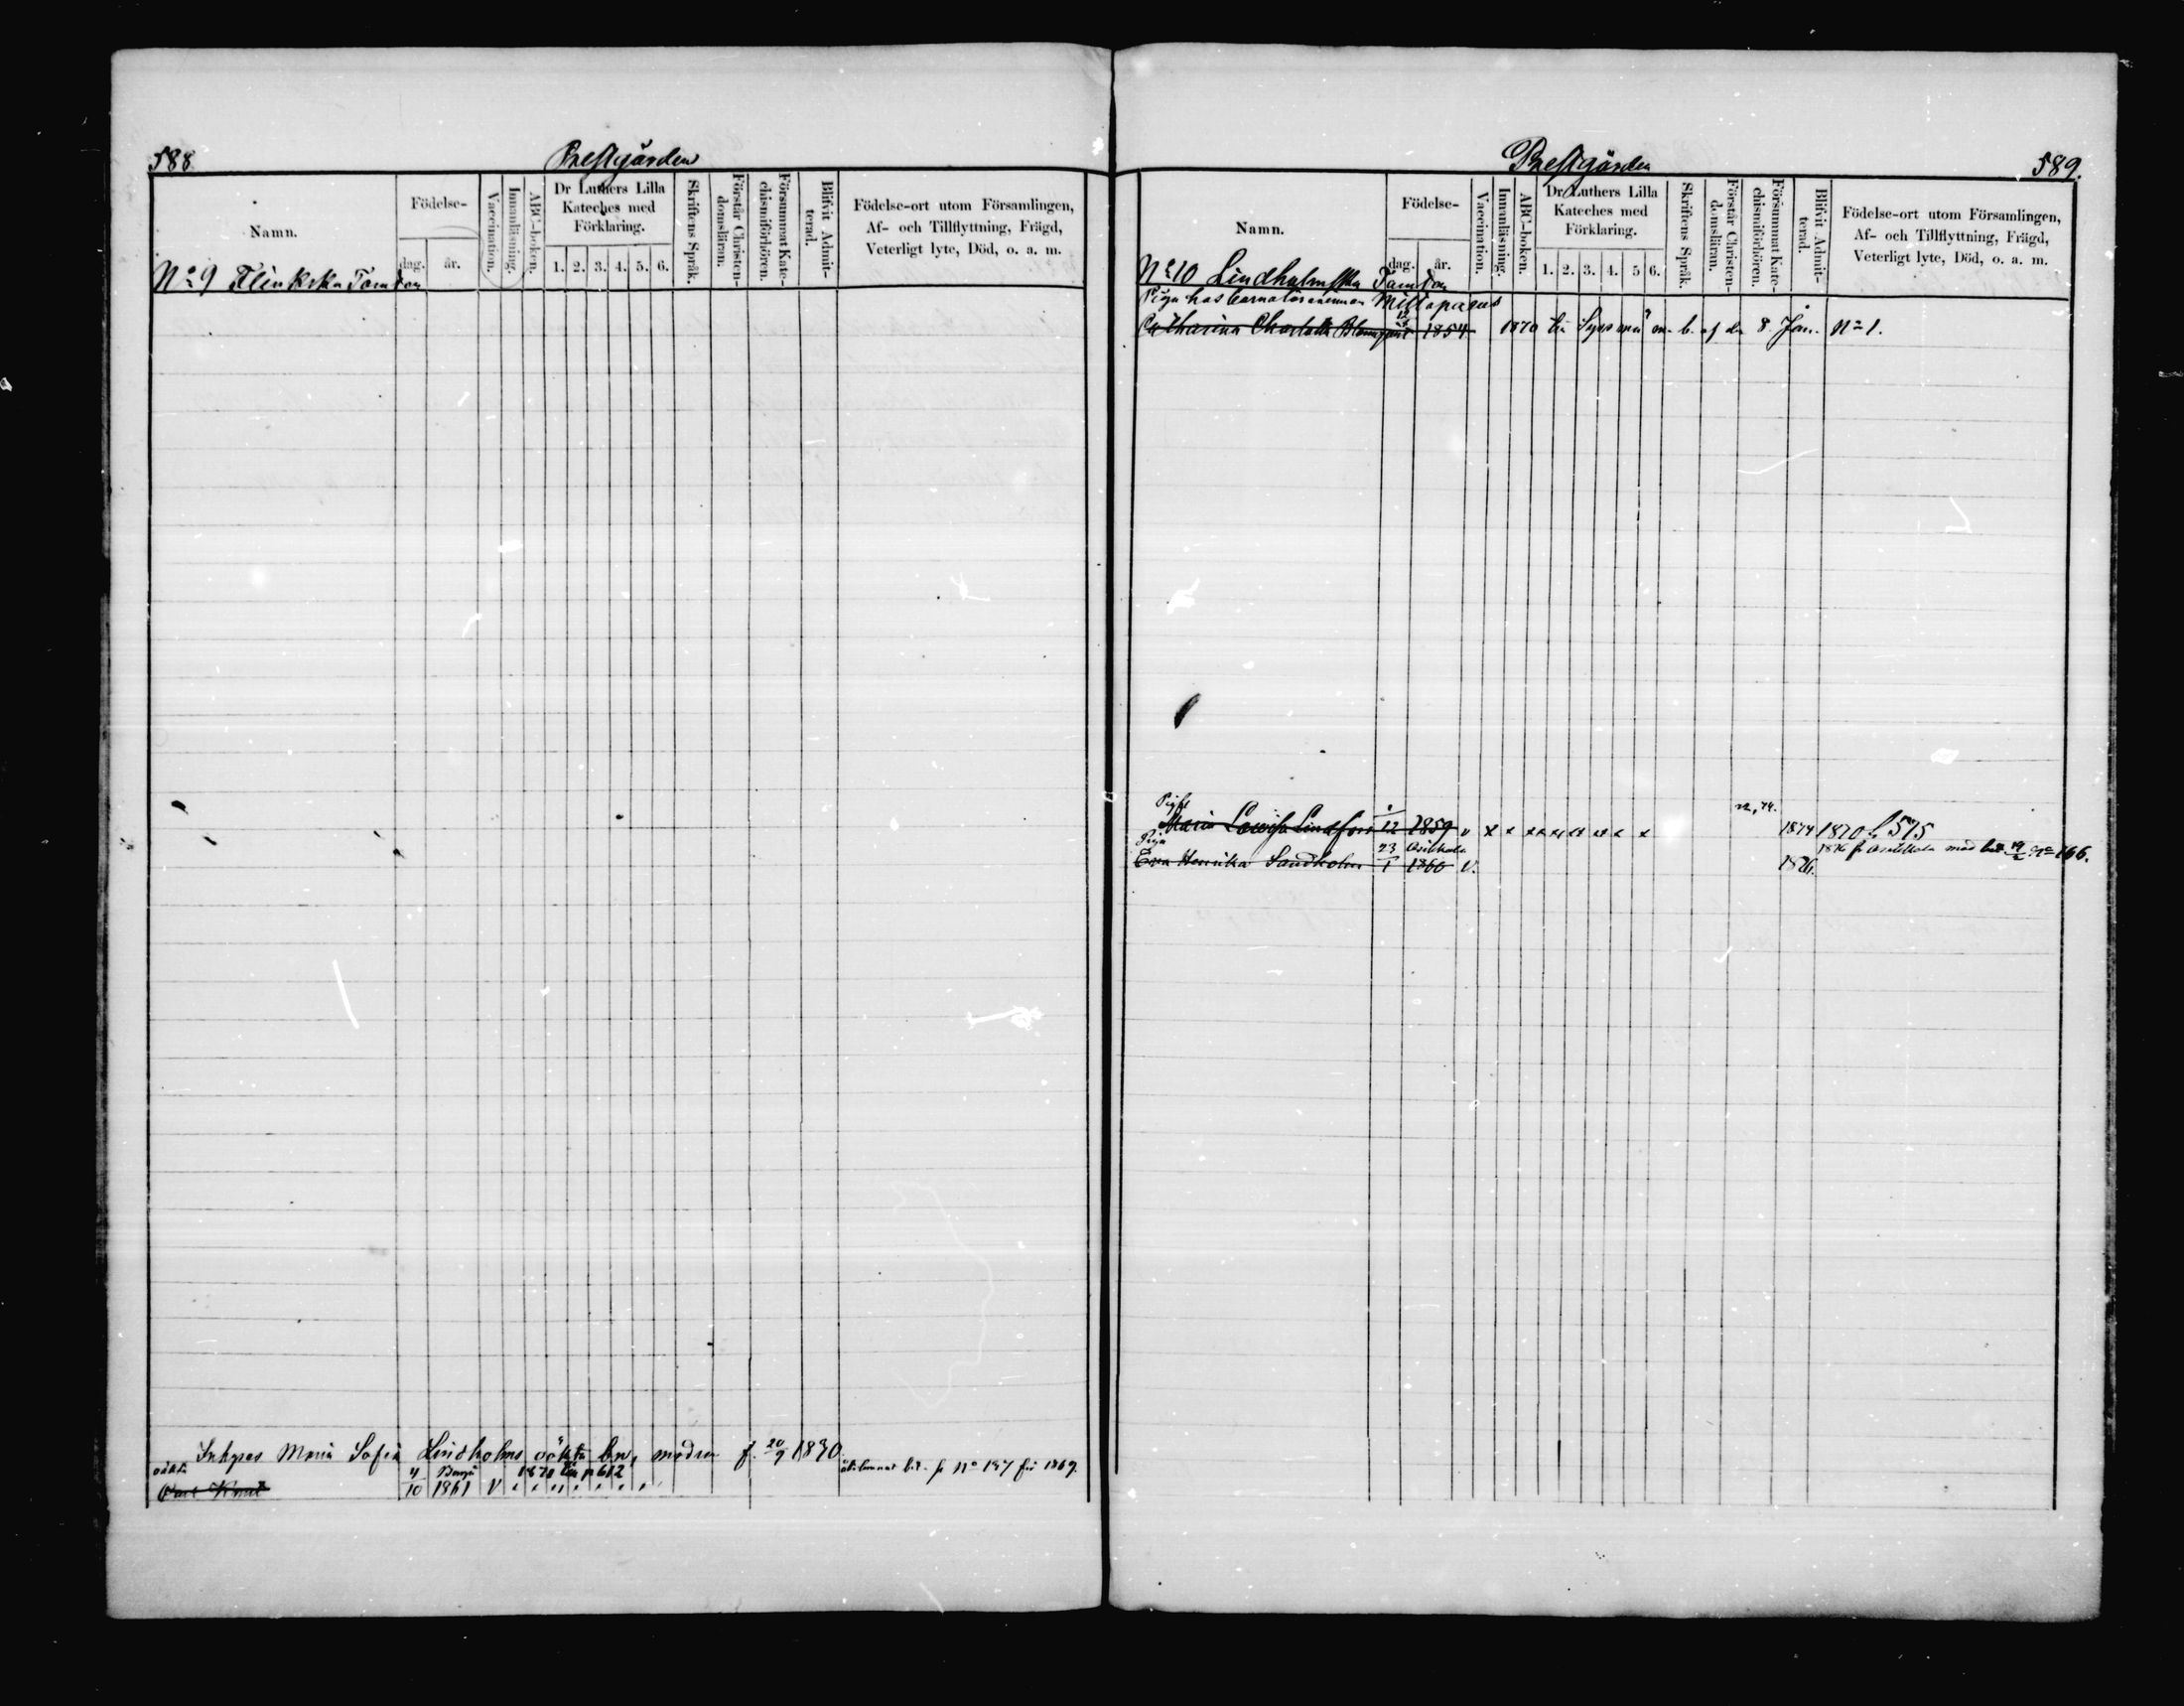 588.
Prestgården
Namn.
Födelse-
dag.
år.
Vaccination.
Innanläsning.
ABC-boken.
Dr Luthers Lilla
Kateches med
Förklaring.
1. 2. 3. 4. 5. 6.
Skriftens Språk.
Förstår Christen-
domsläran.
Försummat Kate-
chismiförhören.
Blifvit Admit-
terad.
Födelse-ort utom Församlingen,
Af- och Tillflyttning, Frägd,
Veterligt lyte, Död, o. a. m.
No 9 Flinkska Tomten
Inhyses Maria Sofia Lindholms oäkta bn, modren f. 20/9 1830
oäkta 4 Borgå 1870 till p 612 bet. fr No 137 för 1869.
Knut 10 1861 V
Prestgården
589.
Namn.
Födelse-
dag.
år.
Vaccination.
Innanläsning.
ABC-boken.
Dr Luthers Lilla
Kateches med
Förklaring.
1. 2. 3. 4. 5 6.
Skriftens Språk.
Förstår Christen-
domsläran.
Försummat Kate-
chismiförhören.
Blifvit Admit-
terad.
Födelse-ort utom Församlingen,
Af- och Tillflyttning, Frägd,
Veterligt lyte, Död, o. a. m.
No 10 Lindholmska Tomten
Piga hos
Catharina Charlotta Blomqvist 12 1854 1870 till Sysmä m. b. af d. 8. Jan. No 1.
Piga 72, 74.
Maria Lowisa Lindfors 12 1859 v x x x x x x x x x 1874 1870 f. 575
Piga 23 Asikkala 1876 fr Asikkala med bet. 19/2 No 166.
Eva Henrika Sandholm 1 1860 V. 1876.